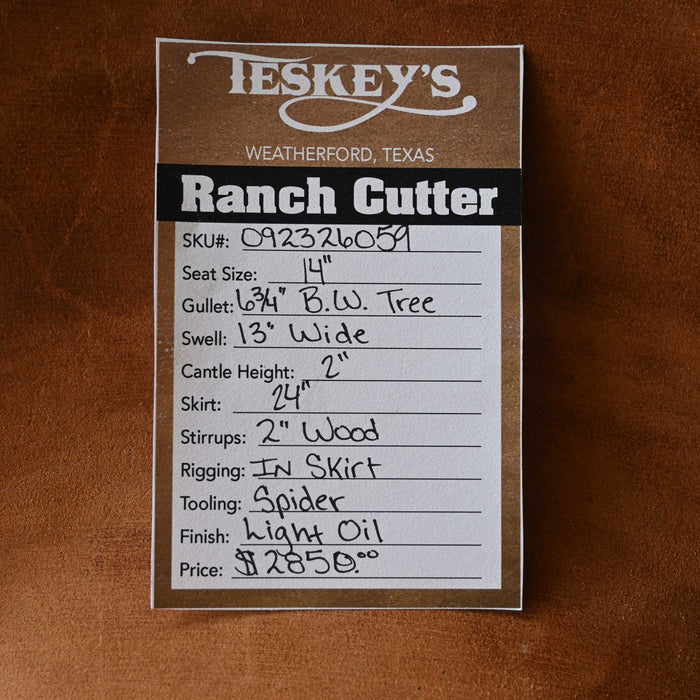 TESKEY'S
WEATHERFORD, TEXAS
Ranch Cutter
SKU#: 092326059
Seat Size: 14"
Gullet: 6 3/4" B.W. Tree
Swell: 13" Wide
Cantle Height: 2"
Skirt: 24"
Stirrups: 2" Wood
Rigging: IN SKirt
Tooling: Spider
Finish: Light Oil
Price: $2850.00